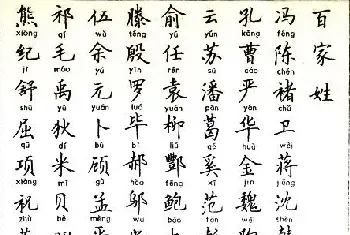 百家姓
冯 féng 陈 chén 褚 chǔ 卫 wèi 蒋 jiǎng 沈 shěn
孔 kǒng 曹 cáo 严 yán 华 huà 金 jīn 魏 wèi
云 yún 苏 sū 潘 pān 葛 gě 奚 xī 范 fàn
俞 yú 任 rén 袁 yuán 柳 liǔ 酆 fēng 鲍 bào
滕 téng 殷 yīn 罗 luó 毕 bì 郝 hǎo 邬 wū
伍 wǔ 余 yú 元 yuán 卜 bǔ 顾 gù 孟 mèng
祁 qí 毛 máo 禹 yǔ 狄 dí 米 mǐ 贝 bèi
熊 xióng 纪 jǐ 舒 shū 屈 qū 项 xiàng 祝 zhù